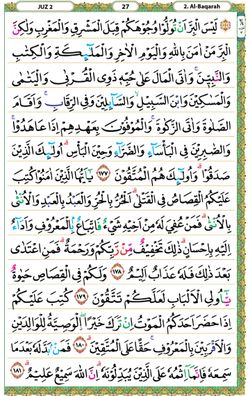 JUZ 2 27 2. Al-Baqarah
لَيْسَ الْبِرَّ اَنْ تُوَلُّوْا وُجُوْهَكُمْ قِبَلَ الْمَشْرِقِ وَالْمَغْرِبِ وَلٰكِنَّ
الْبِرَّ مَنْ اٰمَنَ بِاللّٰهِ وَالْيَوْمِ الْاٰخِرِ وَالْمَلٰٓئِكَةِ وَالْكِتٰبِ
وَالنَّبِيّٖنَ ۚ وَاٰتَى الْمَالَ عَلٰى حُبِّهٖ ذَوِى الْقُرْبٰى وَالْيَتٰمٰى
وَالْمَسٰكِيْنَ وَابْنَ السَّبِيْلِ ۙ وَالسَّآئِلِيْنَ وَفِى الرِّقَابِ ۚ وَاَقَامَ
الصَّلٰوةَ وَاٰتَى الزَّكٰوةَ ۚ وَالْمُوْفُوْنَ بِعَهْدِهِمْ اِذَا عَاهَدُوْا ۚ
وَالصّٰبِرِيْنَ فِى الْبَاْسَآءِ وَالضَّرَّآءِ وَحِيْنَ الْبَاْسِ ؕ اُولٰٓئِكَ الَّذِيْنَ
صَدَقُوْا ؕ وَاُولٰٓئِكَ هُمُ الْمُتَّقُوْنَ ﴿۱۷۷﴾ يٰٓاَيُّهَا الَّذِيْنَ اٰمَنُوْا كُتِبَ
عَلَيْكُمُ الْقِصَاصُ فِى الْقَتْلٰى ؕ اَلْحُرُّ بِالْحُرِّ وَالْعَبْدُ بِالْعَبْدِ وَالْاُنْثٰى
بِالْاُنْثٰى ؕ فَمَنْ عُفِىَ لَهٗ مِنْ اَخِيْهِ شَىْءٌ فَاتِّبَاعٌۢ بِالْمَعْرُوْفِ وَاَدَآءٌ
اِلَيْهِ بِاِحْسَانٍ ؕ ذٰلِكَ تَخْفِيْفٌ مِّنْ رَّبِّكُمْ وَرَحْمَةٌ ؕ فَمَنِ اعْتَدٰى
بَعْدَ ذٰلِكَ فَلَهٗ عَذَابٌ اَلِيْمٌ ﴿۱۷۸﴾ وَلَكُمْ فِى الْقِصَاصِ حَيٰوةٌ
يّٰٓاُولِى الْاَلْبَابِ لَعَلَّكُمْ تَتَّقُوْنَ ﴿۱۷۹﴾ كُتِبَ عَلَيْكُمْ
اِذَا حَضَرَ اَحَدَكُمُ الْمَوْتُ اِنْ تَرَكَ خَيْرَا ۖ ۨالْوَصِيَّةُ لِلْوَالِدَيْنِ
وَالْاَقْرَبِيْنَ بِالْمَعْرُوْفِ ۚ حَقًّا عَلَى الْمُتَّقِيْنَ ﴿۱۸۰﴾ فَمَنْۢ بَدَّلَهٗ بَعْدَمَا
سَمِعَهٗ فَاِنَّمَاۤ اِثْمُهٗ عَلَى الَّذِيْنَ يُبَدِّلُوْنَهٗ ؕ اِنَّ اللّٰهَ سَمِيْعٌ عَلِيْمٌ ﴿۱۸۱﴾